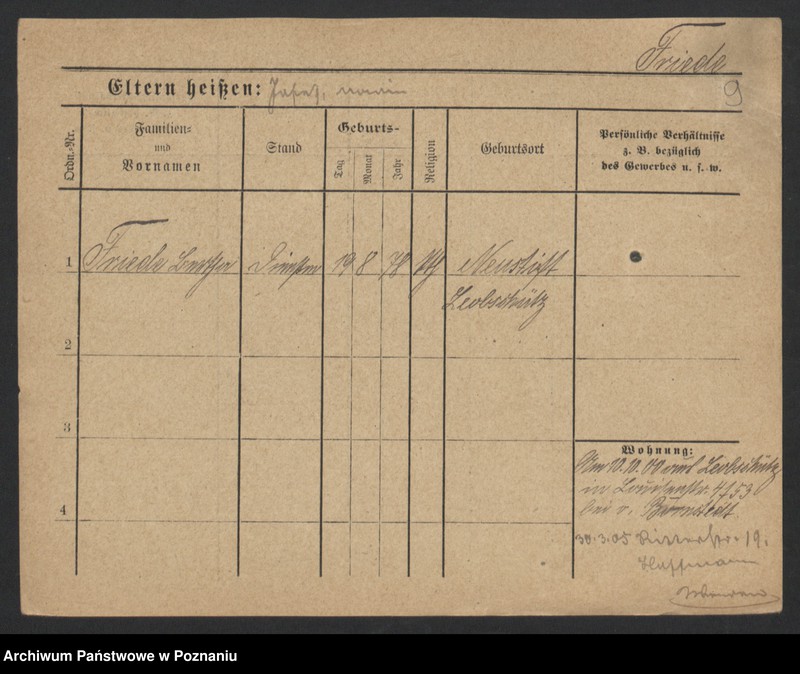 Friede
9
Eltern heißen: Josef,
Ordn.-Nr.
Familien-
und
Vornamen
Stand
Geburts-
Tag
Monat
Jahr
Religion
Geburtsort
Persönliche Verhältnisse
z. B. bezüglich
des Gewerbes u. s. w.
1 Friede 19 8 78 Neustift
Leobschütz
2
3
4
Wohnung:
Am 10.10.00 aus Leobschütz
in Louisenstr. 4/53
bei v.
30.3.05 Ritterstr. 19.
Archiwum Państwowe w Poznaniu